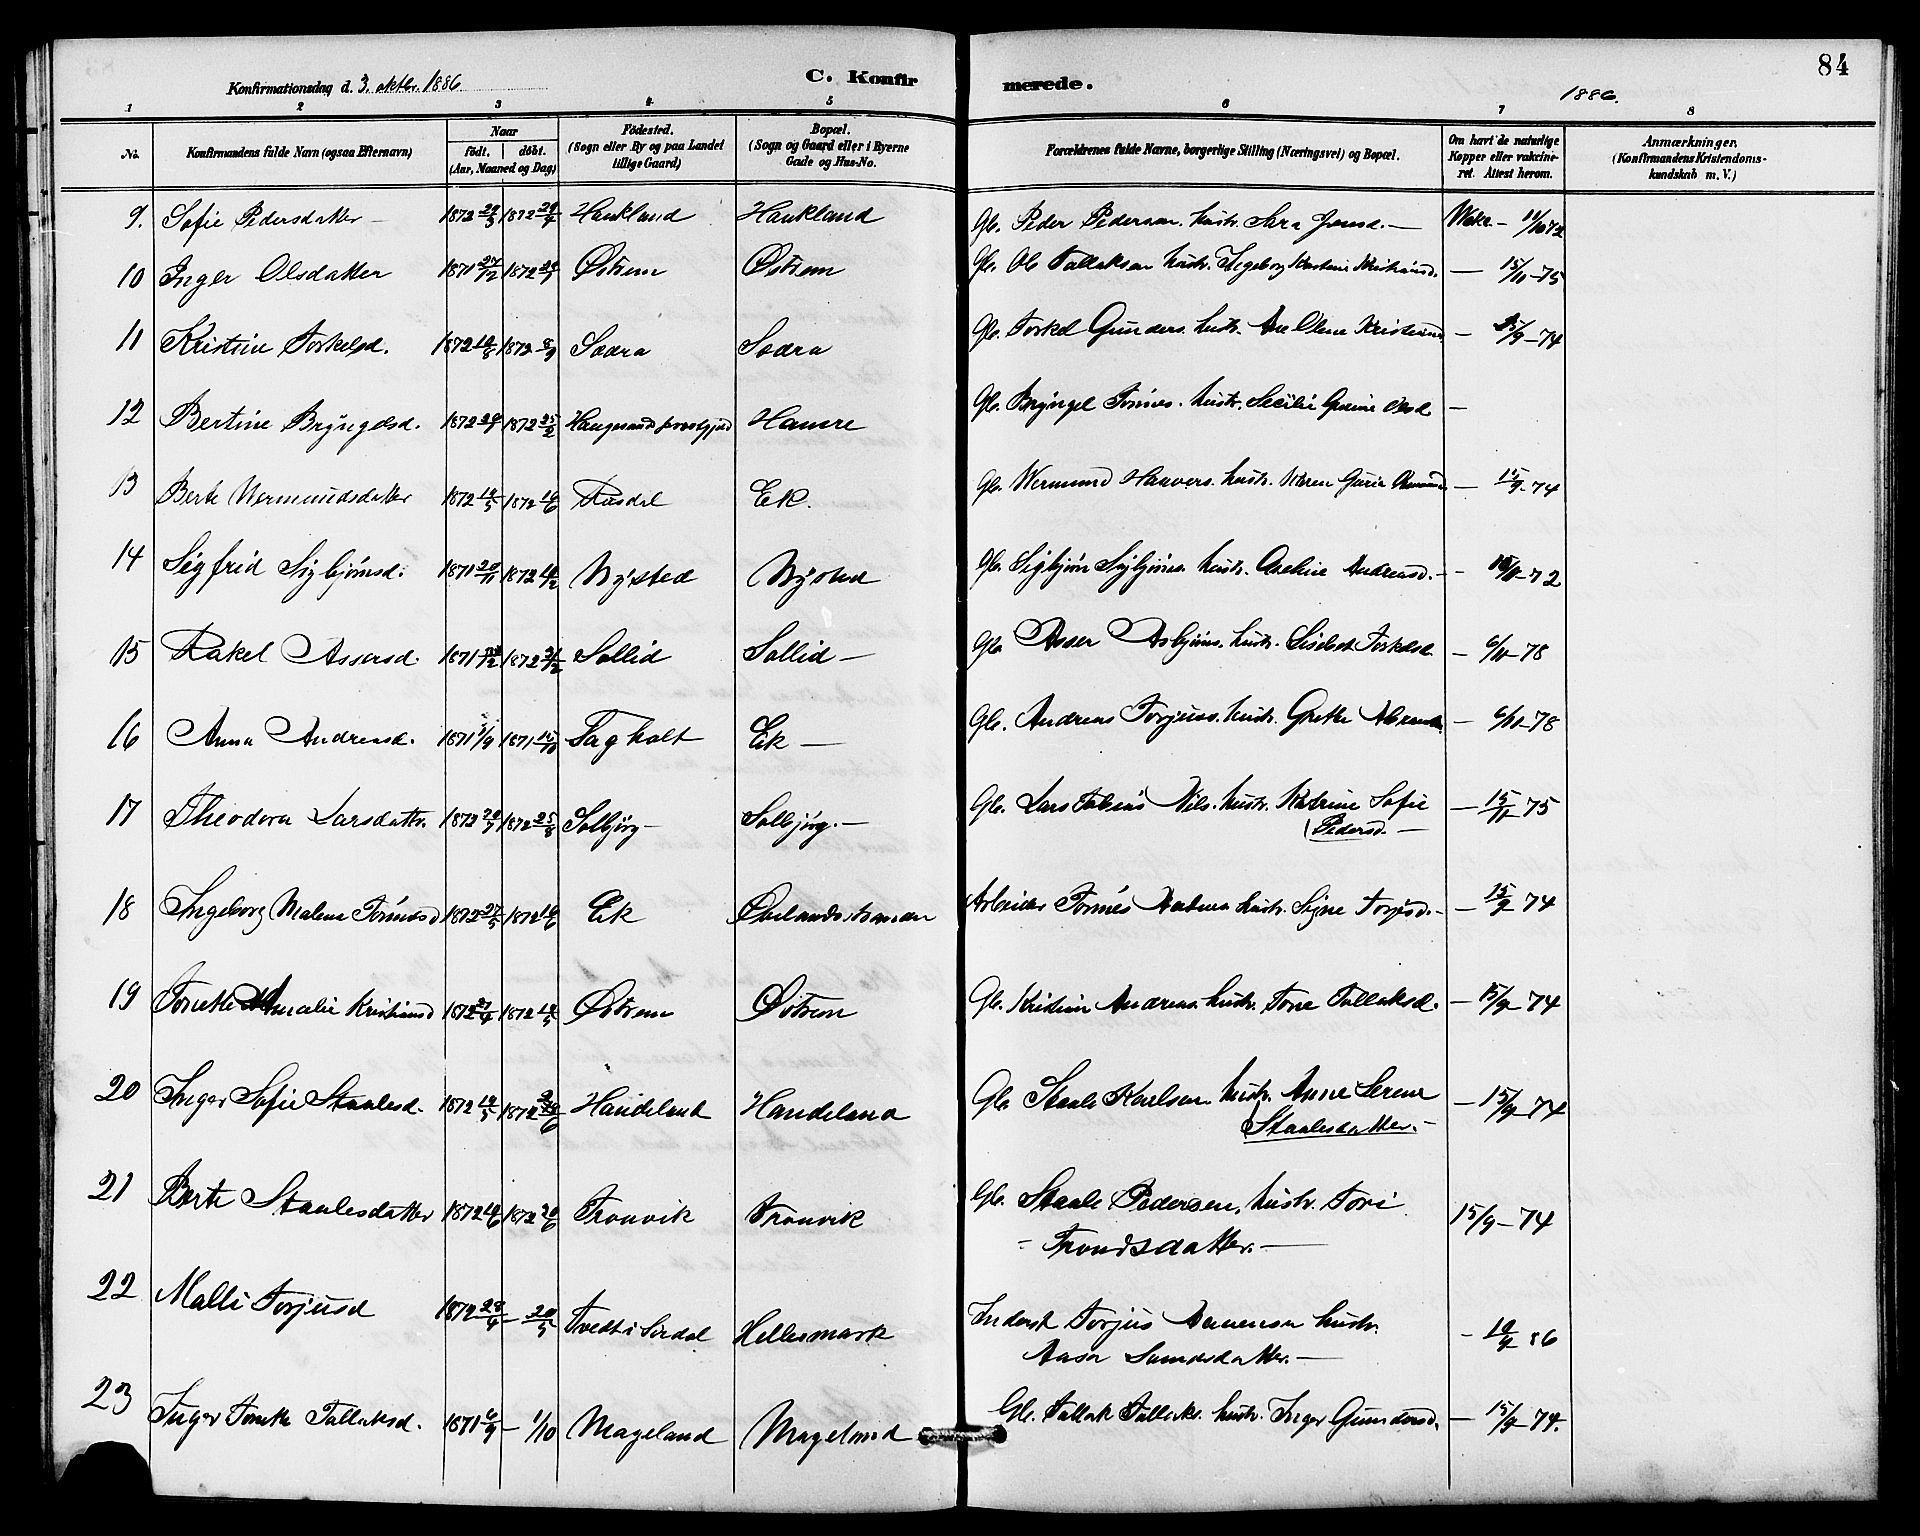 84
Konfirmationsdag d. 3. oktbr. 1886
C. Konfirmerede.
1886.
1 2 3 4 5 6 7 8
No.
Konfirmandens fulde Navn (ogsaa Efternavn)
Naar
født. døbt.
(Aar, Maaned og Dag)
Fødested.
(Sogn eller By og paa Landet
tillige Gaard)
Bopæl.
(Sogn og Gaard eller i Byerne
Gade og Hus-No.
Forældrenes fulde Navne, borgerlige Stilling (Næringsvei) og Bopæl.
Om havt de naturlige
Kopper eller vakcine-
ret. Attest herom.
Anmærkninger.
(Konfirmandens Kristendoms-
kundskab m. V.)
9. Sofie Pedersdatter 1872 1872 Haukland Haukland Gb. Peder Pedersen hustr. Sara Jonsd. — 11/10 72
10 Inger Olsdatter 1871 27/12 1872 Østrem Østrem Gb. Ole Tallaksen hustr. Ingeborg Kristiansd. — 15/11-75
11 Kristine Torkelsd. 1872 1872 8/9 Sodra Sodra Gb. Torkel Gunders. hustr. Ane Oline — 15/9-74
12 Bertine Bryngelsd. 1872 1872 25/2 Hamre Gb. Bryngel Tønnes. hustr. Secilie Olsd —
13 Berte Wermundsdatter 1872 1872 Rusdal Ek. Gb. Wermund hustr. Karen — 15/9-74
14 Sigfrid Sigbjørnsd. 1871 20/11 1872 Nysted Nysted Gb. Sigbjørn Sigbjørns. hustr. Andreasd. — 15/11-72
15 Rakel Assersd. 1871 1872 Sollid Sollid — Gb. Asser Asbjørns. hustr. Lisebet Torkelsd. — 6/11-78
16 Anna Andreasd. 1871 5/9 1871 Fagholt Ek — Gb. Andreas Torjuss. hustr. Grethe — 6/11-78
17 Theodora Larsdatter. 1872 1872 25/8 Solbjørg — Solbjørg. — Gb. Lars Tobias Nils. hustr. Katrine Sofie — 15/11 75
Pedersd. —
18 Ingeborg Malene Tønnesd 1872 27/5 1872 Ek Tønnes hustr. Signe Torjusd. — 15/9 74
19 Amalie Kristiansd 1872 27/4 1872 Østrem Østrem Gb. Kristian Andreas. hustr. Tone Tallaksd. — 15/9-74
20 Inger Sofie Staalesd. 1872 1872 Handeland Handeland Gb. Staale Karlsen hustr. Anne Serine — 15/9-74
Staalesdatter. —
21 Berte Staalesdatter 1872 1872 20/6 Tronvik Tronvik Gb. Staale Pedersen, hustr. Tori 15/9-74
- Trondsdatter. —
22 Malli Torjusd 1872 28/4 — 20/5 Tvedt i Sirdal Hellesmark Inderst Torjus hustr. - 10/9 86
Aasa —
23 Inger Tallaksd. 1871 6/9 — 1/10 Mageland Mageland Gb. Tallak Tallaks. hustr. Inger Gundersd. — 15/9-74.